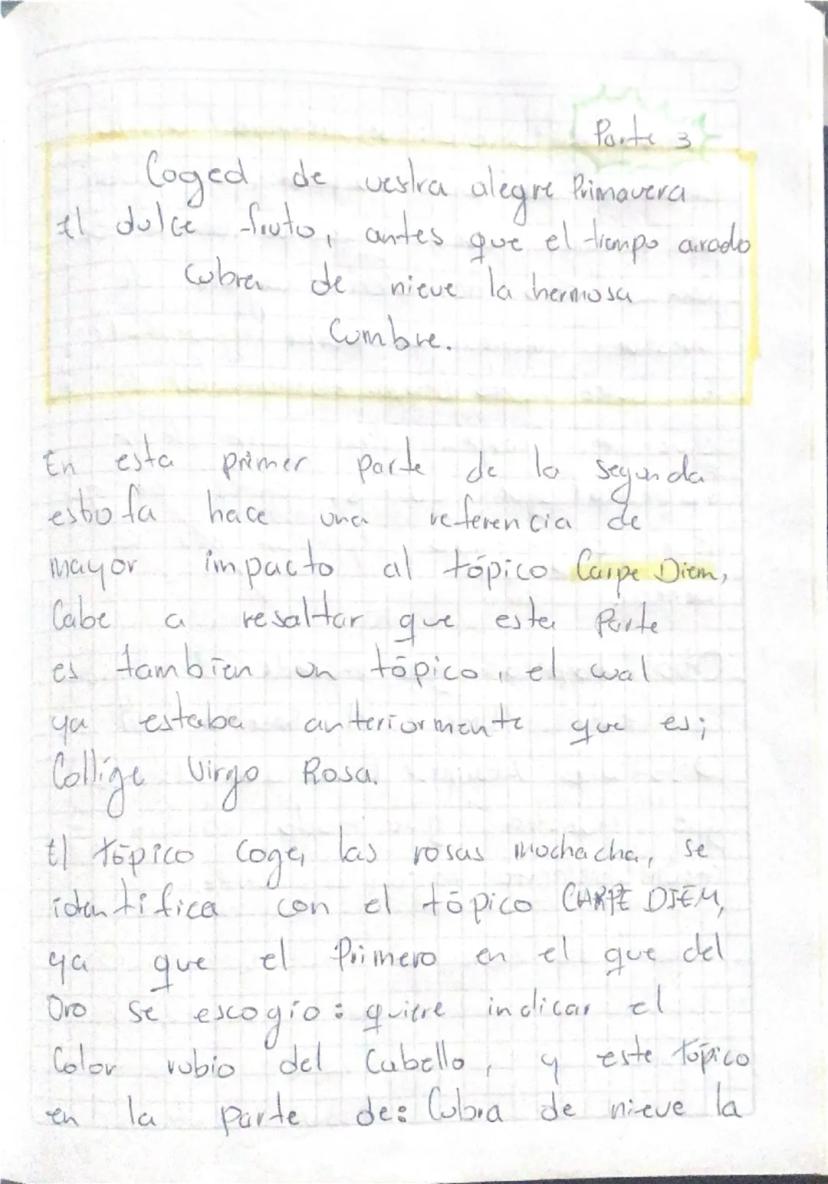 Parte 3
Coged de vestra alegre Primavera
El dulce fruto, antes que el tiempo airado
Cubra de nieve la hermosa
Cumbre.
En esta primer parte de la segunda
estrofa hace una referencia de
mayor impacto al tópico Carpe Diem,
Cabe a resaltar que esta Parte
es tambien un tópico, el cual
ya estaba anteriormente que es;
Collige Virgo Rosa.
El tópico coge, las rosas mochacha, se
identifica con el tópico CARPE DIEM,
ya que el Primero en el que del
Oro se escogío: quiere indicar el
Color rubio del Cabello, y este tópico
en la parte de: Cubra de nieve la